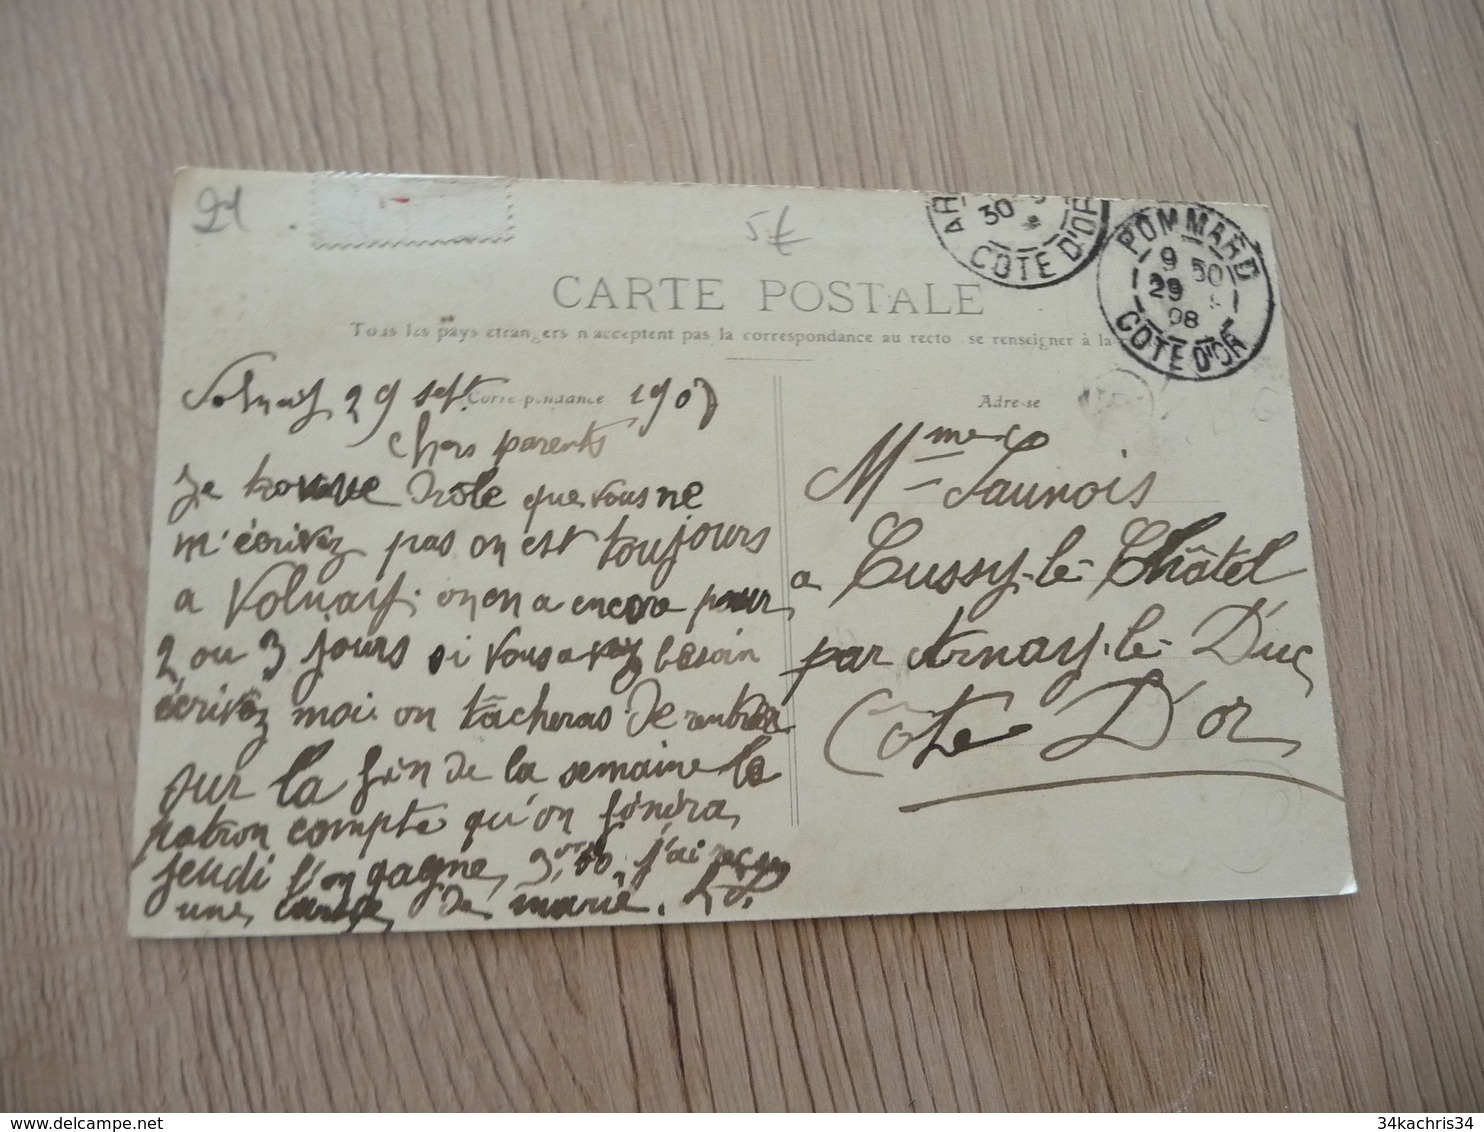 21
5€
CARTE POSTALE
Tous les pays étrangers n'acceptent pas la correspondance au recto se renseigner à la
30
COTE D'OR
POMMARD
9 50
29
08
COTE D'OR
Correspondance
Adresse
Volnay 29 sept 1908
Chers parents
Je trouve drôle que vous ne
m'écrivez pas on est toujours
a Volnay. on en a encore pour
2 ou 3 jours si vous avez besoin
écrivez moi on tâcheras de rentrer
sur la fin de la semaine le
patron compte qu'on finira
jeudi l'on gagne, j'ai reçu
une carte de marie.
Mme
Launois
a Cussy-le-Châtel
par Arnay-le-Duc
Côte D'or
34kachris34